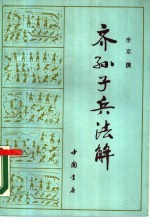 李京撰
齐孙子兵法解
中国书店